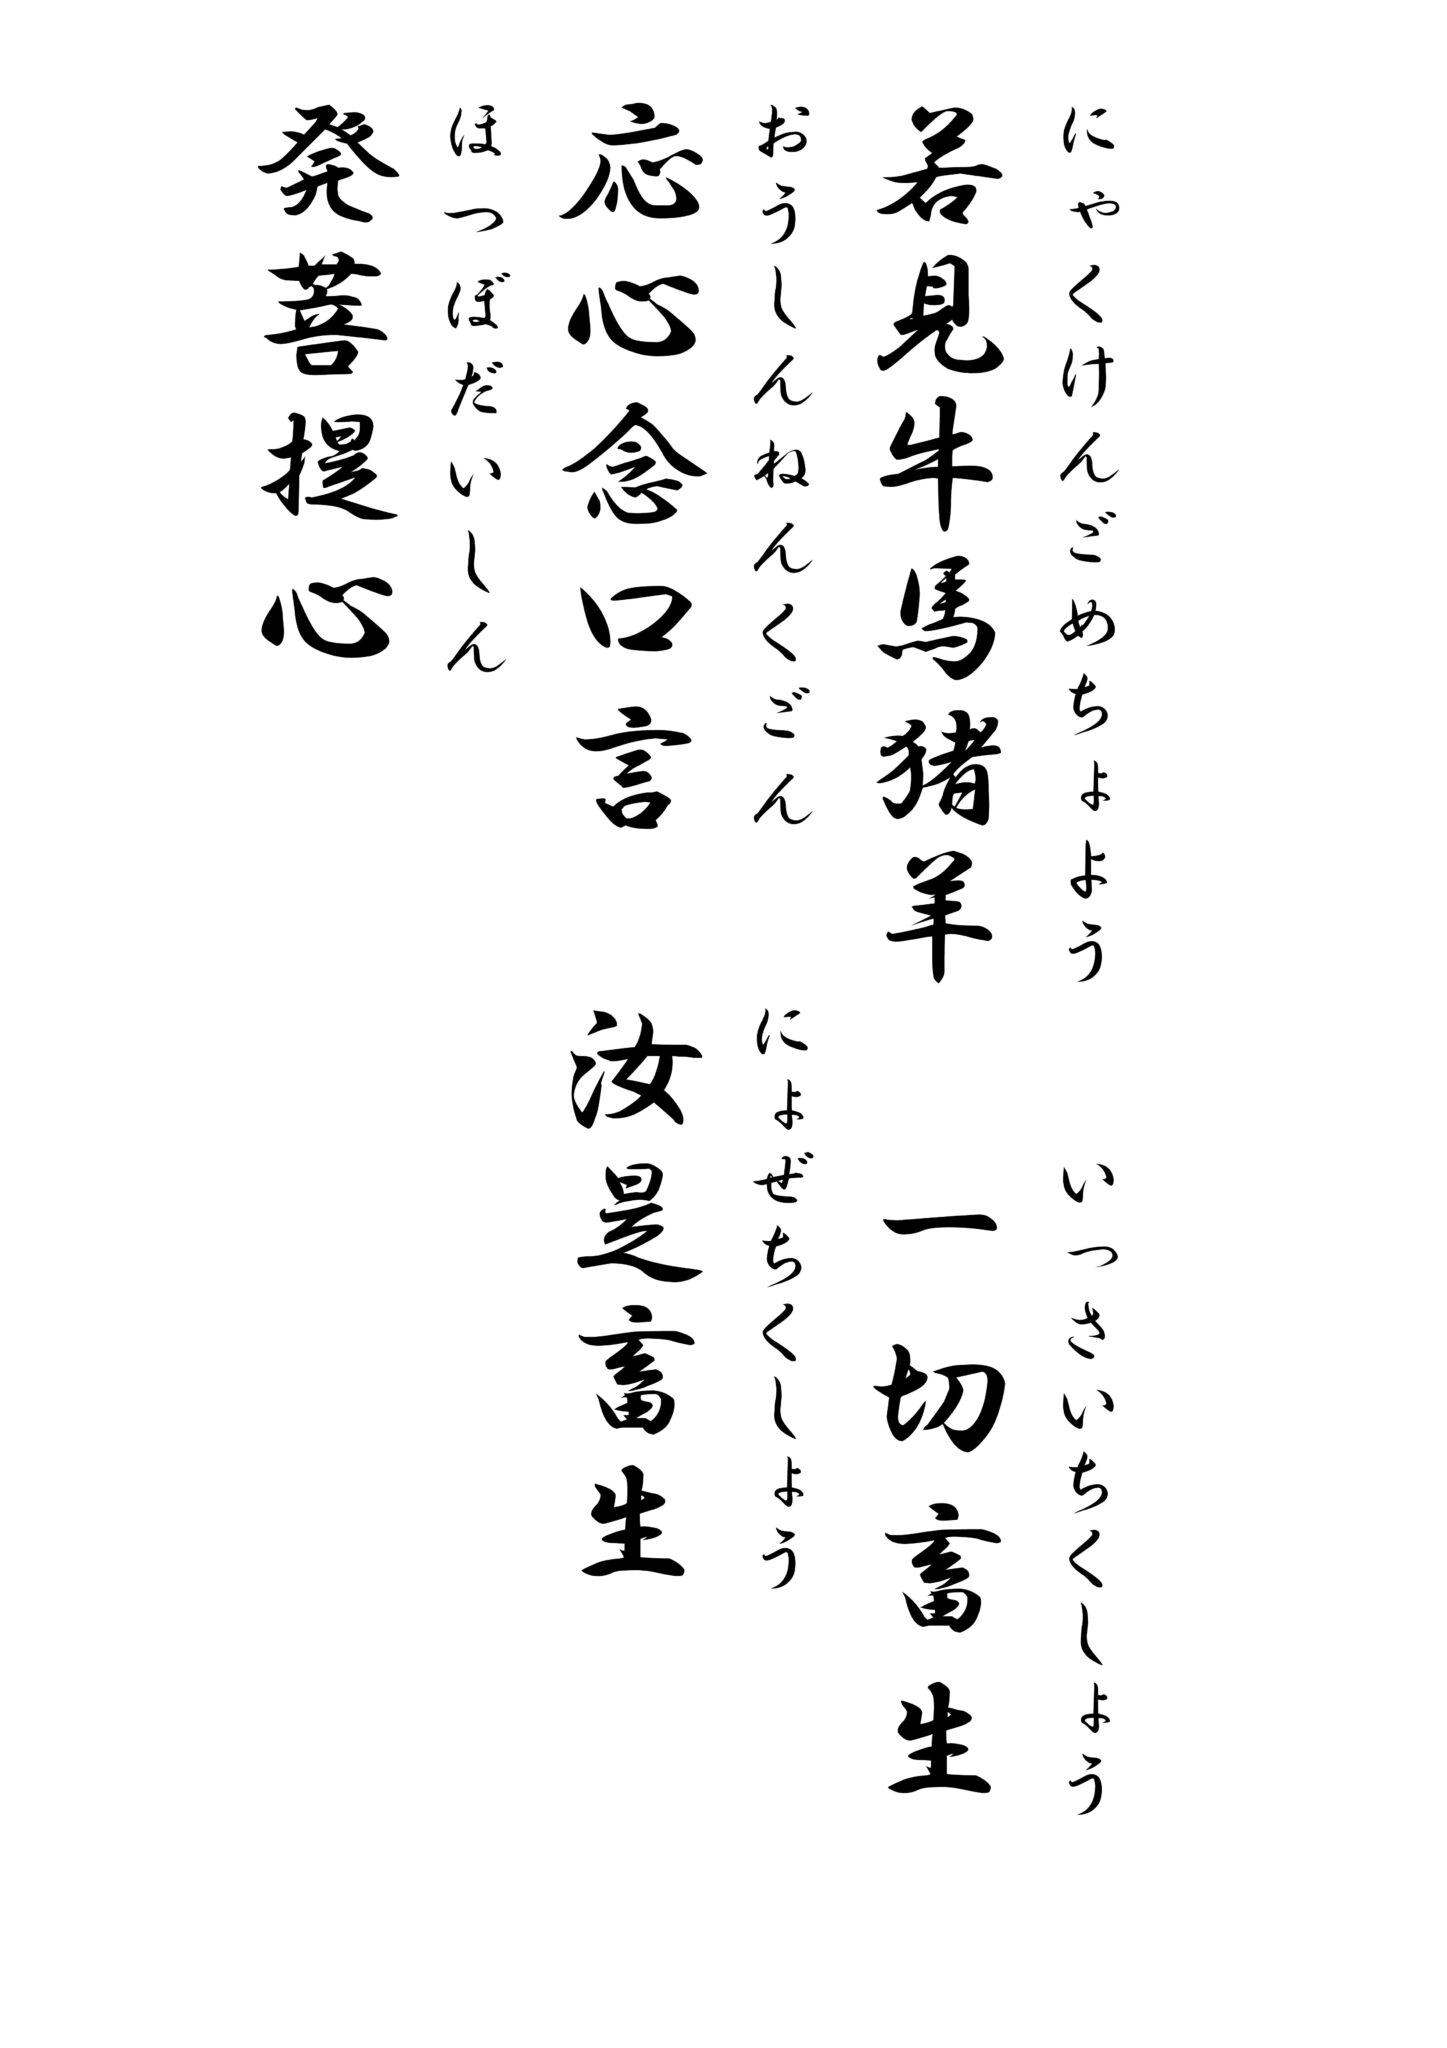 にゃくけんごめちょよう　いっさいちくしょう
若見牛馬猪羊　一切畜生
おうしんねんくごん　にょぜちくしょう
応心念口言　汝是畜生
ほつぼだいしん
発菩提心